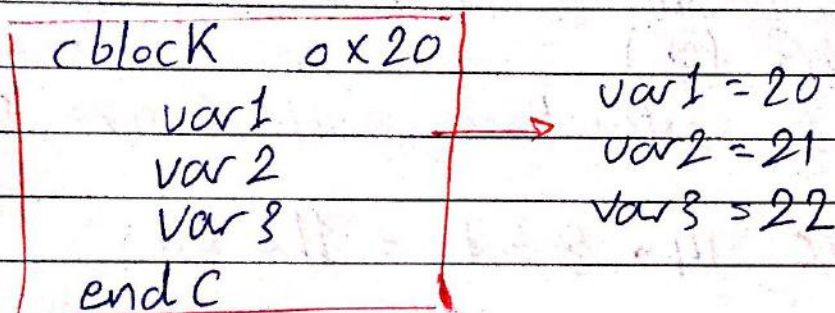 cblock 0x20
var1
var2
var3
endC
var1 = 20
var2 = 21
var3 = 22